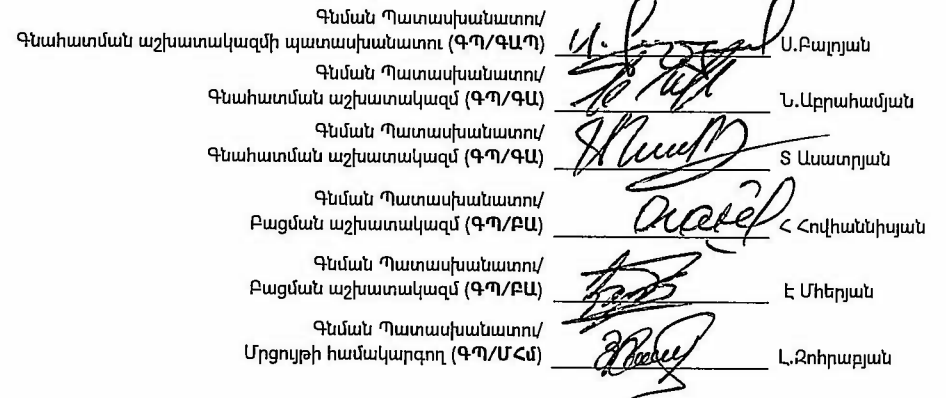 Գնման Պատասխանատու/
Գնահատման աշխատակազմի պատասխանատու (ԳՊ/ԳԱՊ) Ս.Բալոյան
Գնման Պատասխանատու/
Գնահատման աշխատակազմ (ԳՊ/ԳԱ) Ն.Աբրահամյան
Գնման Պատասխանատու/
Գնահատման աշխատակազմ (ԳՊ/ԳԱ) Տ Ասատրյան
Գնման Պատասխանատու/
Բացման աշխատակազմ (ԳՊ/ԲԱ) Հ Հովհաննիսյան
Գնման Պատասխանատու/
Բացման աշխատակազմ (ԳՊ/ԲԱ) Է Մհերյան
Գնման Պատասխանատու/
Մրցույթի համակարգող (ԳՊ/ՄՀմ) Լ.Զոհրաբյան